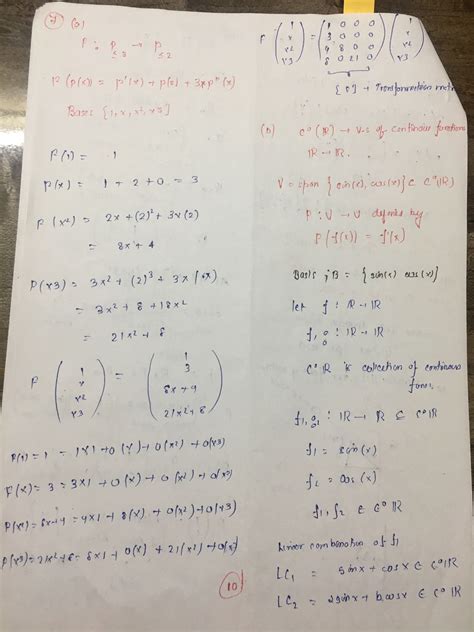 7 (a)
P : P≤3 → P≤2
P(p(x)) = p'(x) + p(2) + 3xp''(x)
Bases {1, x, x², x3}
P(1) = 1
P(x) = 1 + 2 + 0 = 3
P(x²) = 2x + (2)² + 3x(2)
= 8x + 4
P(x3) = 3x² + (2)³ + 3x(6x)
= 3x² + 8 + 18x²
= 21x² + 8
P ( 1 x x2 x3 ) = ( 1 3 8x+4 21x²+8 )
P(1) = 1 = 1X1 + 0(x) + 0(x²) + 0(x3)
P(x) = 3 = 3x1 + 0(x) + 0(x²) + 0(x³)
P(x²) = 8x+4 = 4x1 + 8(x) + 0(x²) + 0(x3)
P(x³) = 21x²+8 = 8x1 + 0(x) + 21(x²) + 0(x)
10
P ( 1 x x² x3 ) = ( 1 0 0 0
3 0 0 0
4 8 0 0
8 0 21 0 ) ( 1 x x² x3 )
Transformation
(b) C°(R) → V.s of continous functions
IR → IR
V = span {sin(x), cos(x)} ⊂ C°(IR)
P : V → V defined by
P(f(x)) = f'(x)
Basis, B = {sin(x) cos(x)}
let f : IR → IR
f, g : IR → IR
C°IR is collection of continous
f1, g : IR → R ⊆ C°IR
f1 = sin(x)
f2 = cos(x)
f1, f2 ∈ C°IR
Linear combination of f1
LC1 = sinx + cosx ∈ C°IR
LC2 = a sinx + b cosx ∈ C°IR